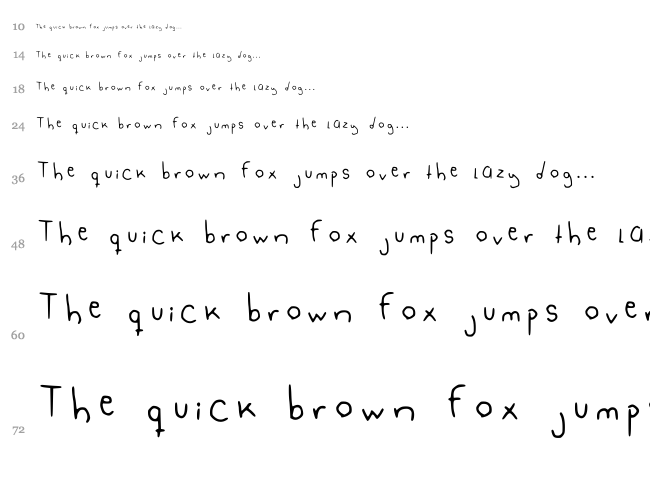 10 The quick brown fox jumps over the lazy dog...
14 The quick brown fox jumps over the lazy dog...
18 The quick brown fox jumps over the lazy dog...
24 The quick brown fox jumps over the lazy dog...
36 The quick brown fox jumps over the lazy dog...
48 The quick brown fox jumps over the la
60 The quick brown fox jumps over
72 The quick brown fox jump